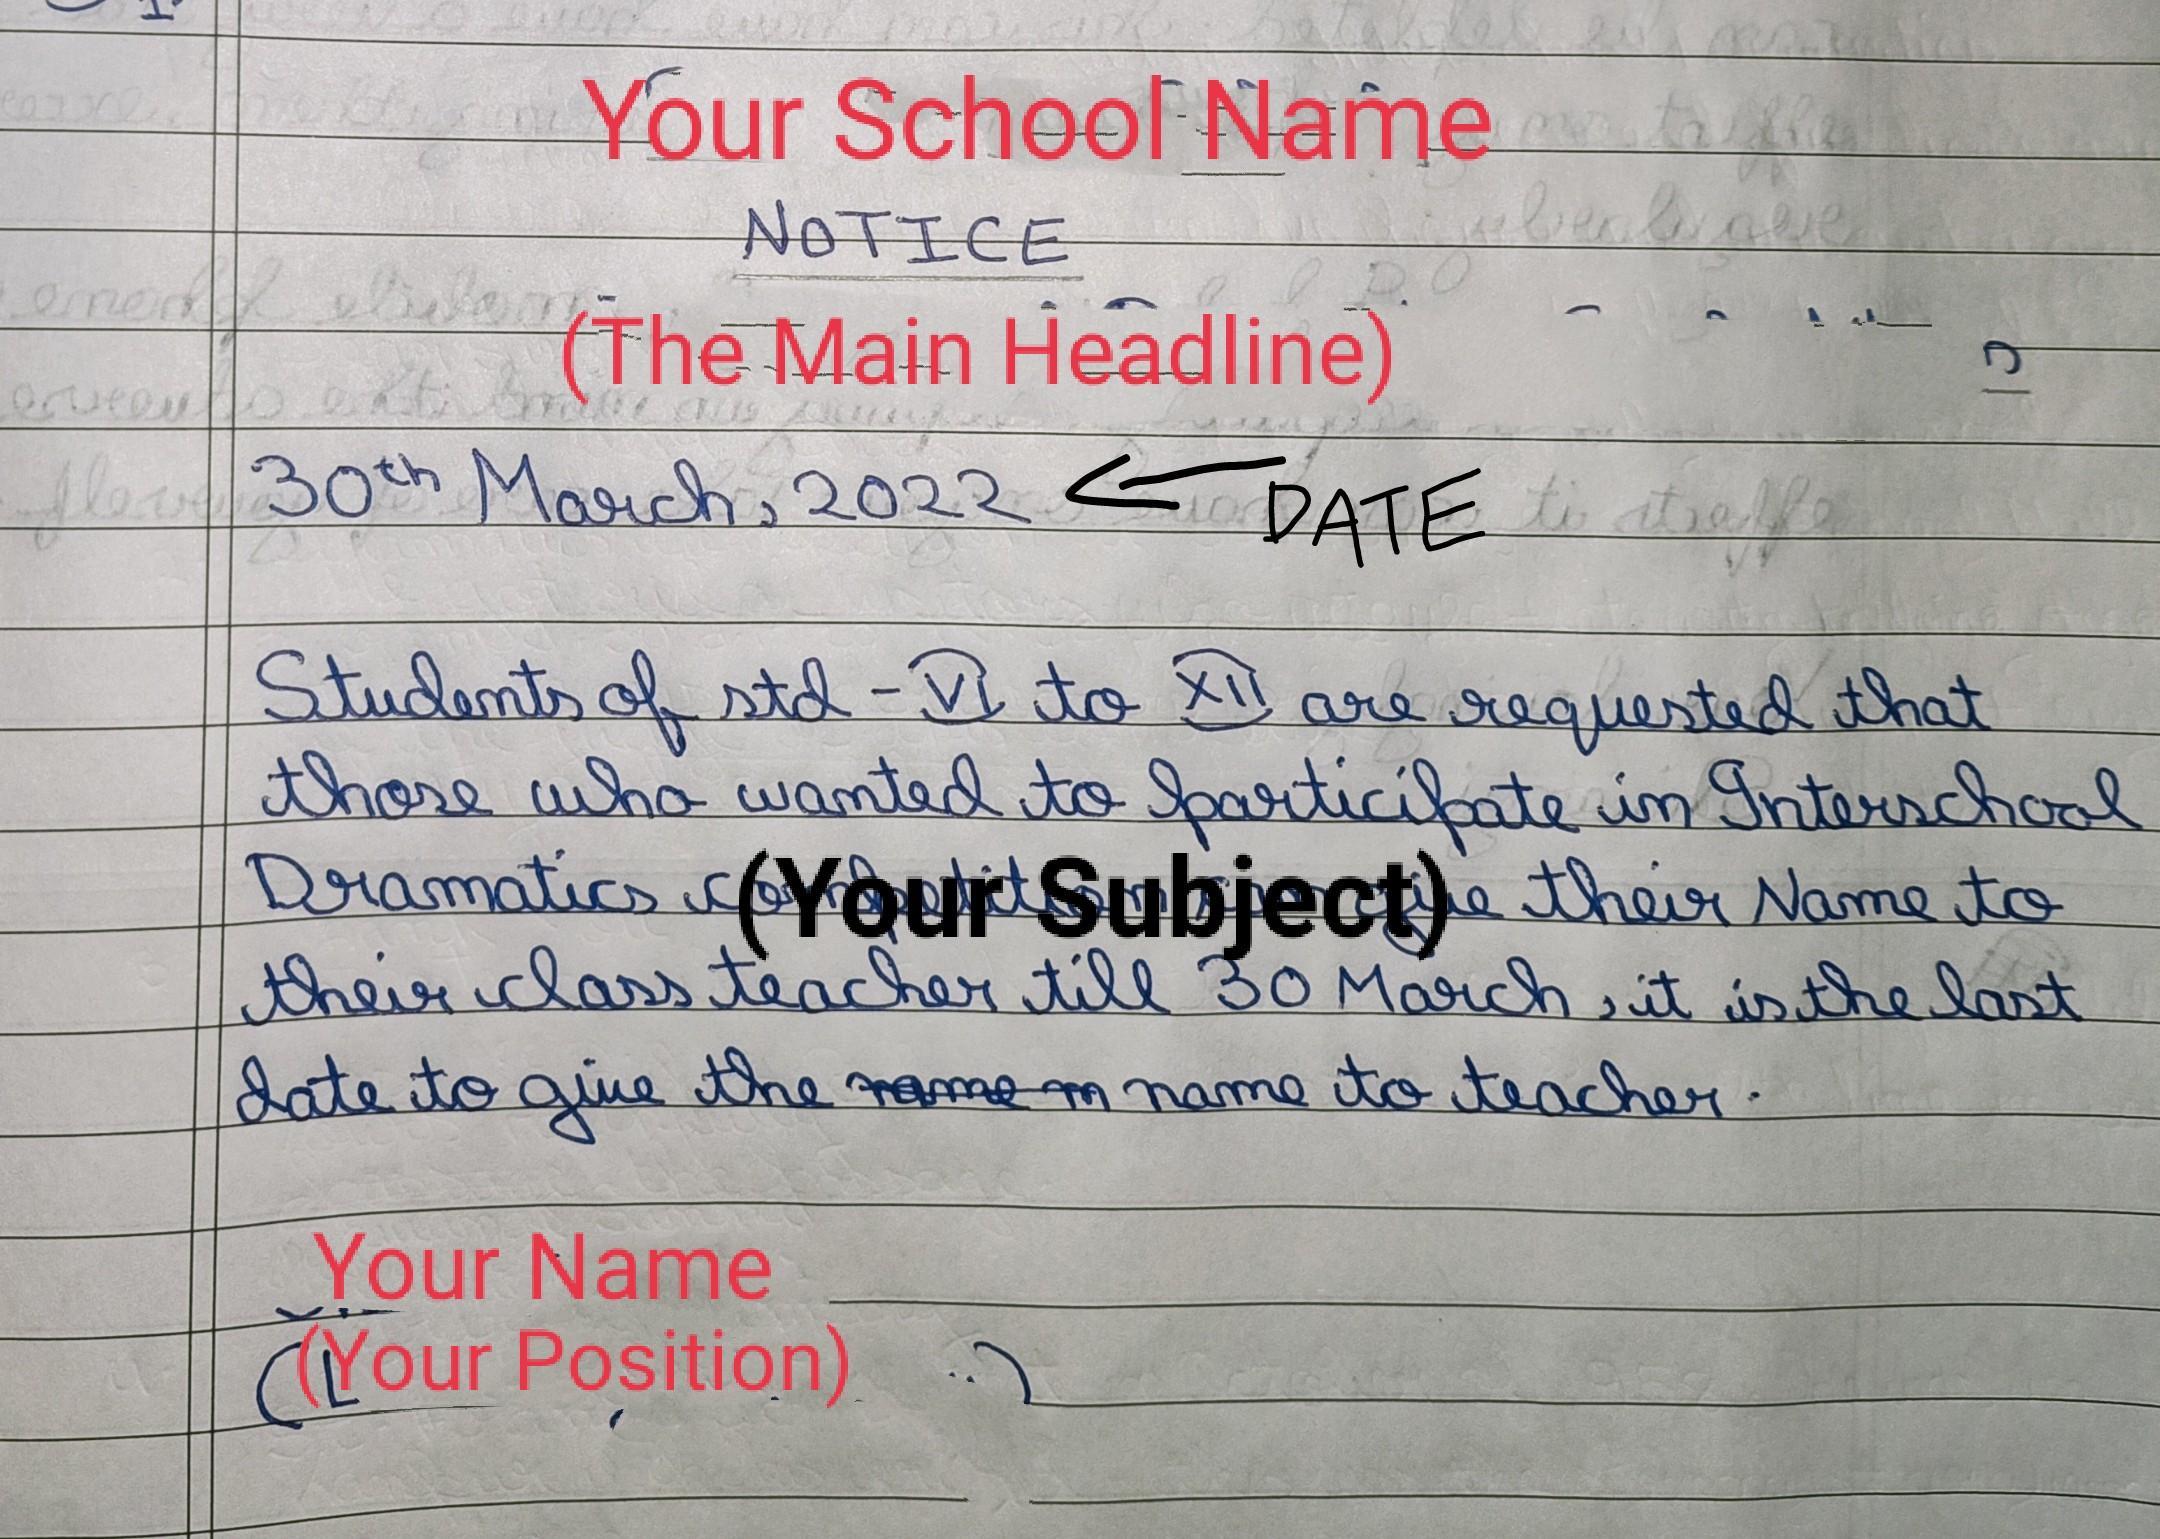 Your School Name
NOTICE
(The Main Headline)
30th March, 2022 ← DATE
Students of std - VI to XII are requested that
those who wanted to participate in Interschool
Dramatics competition can give their Name to
(Your Subject)
their class teacher till 30 March, it is the last
date to give the name m name to teacher.
Your Name
(Your Position)